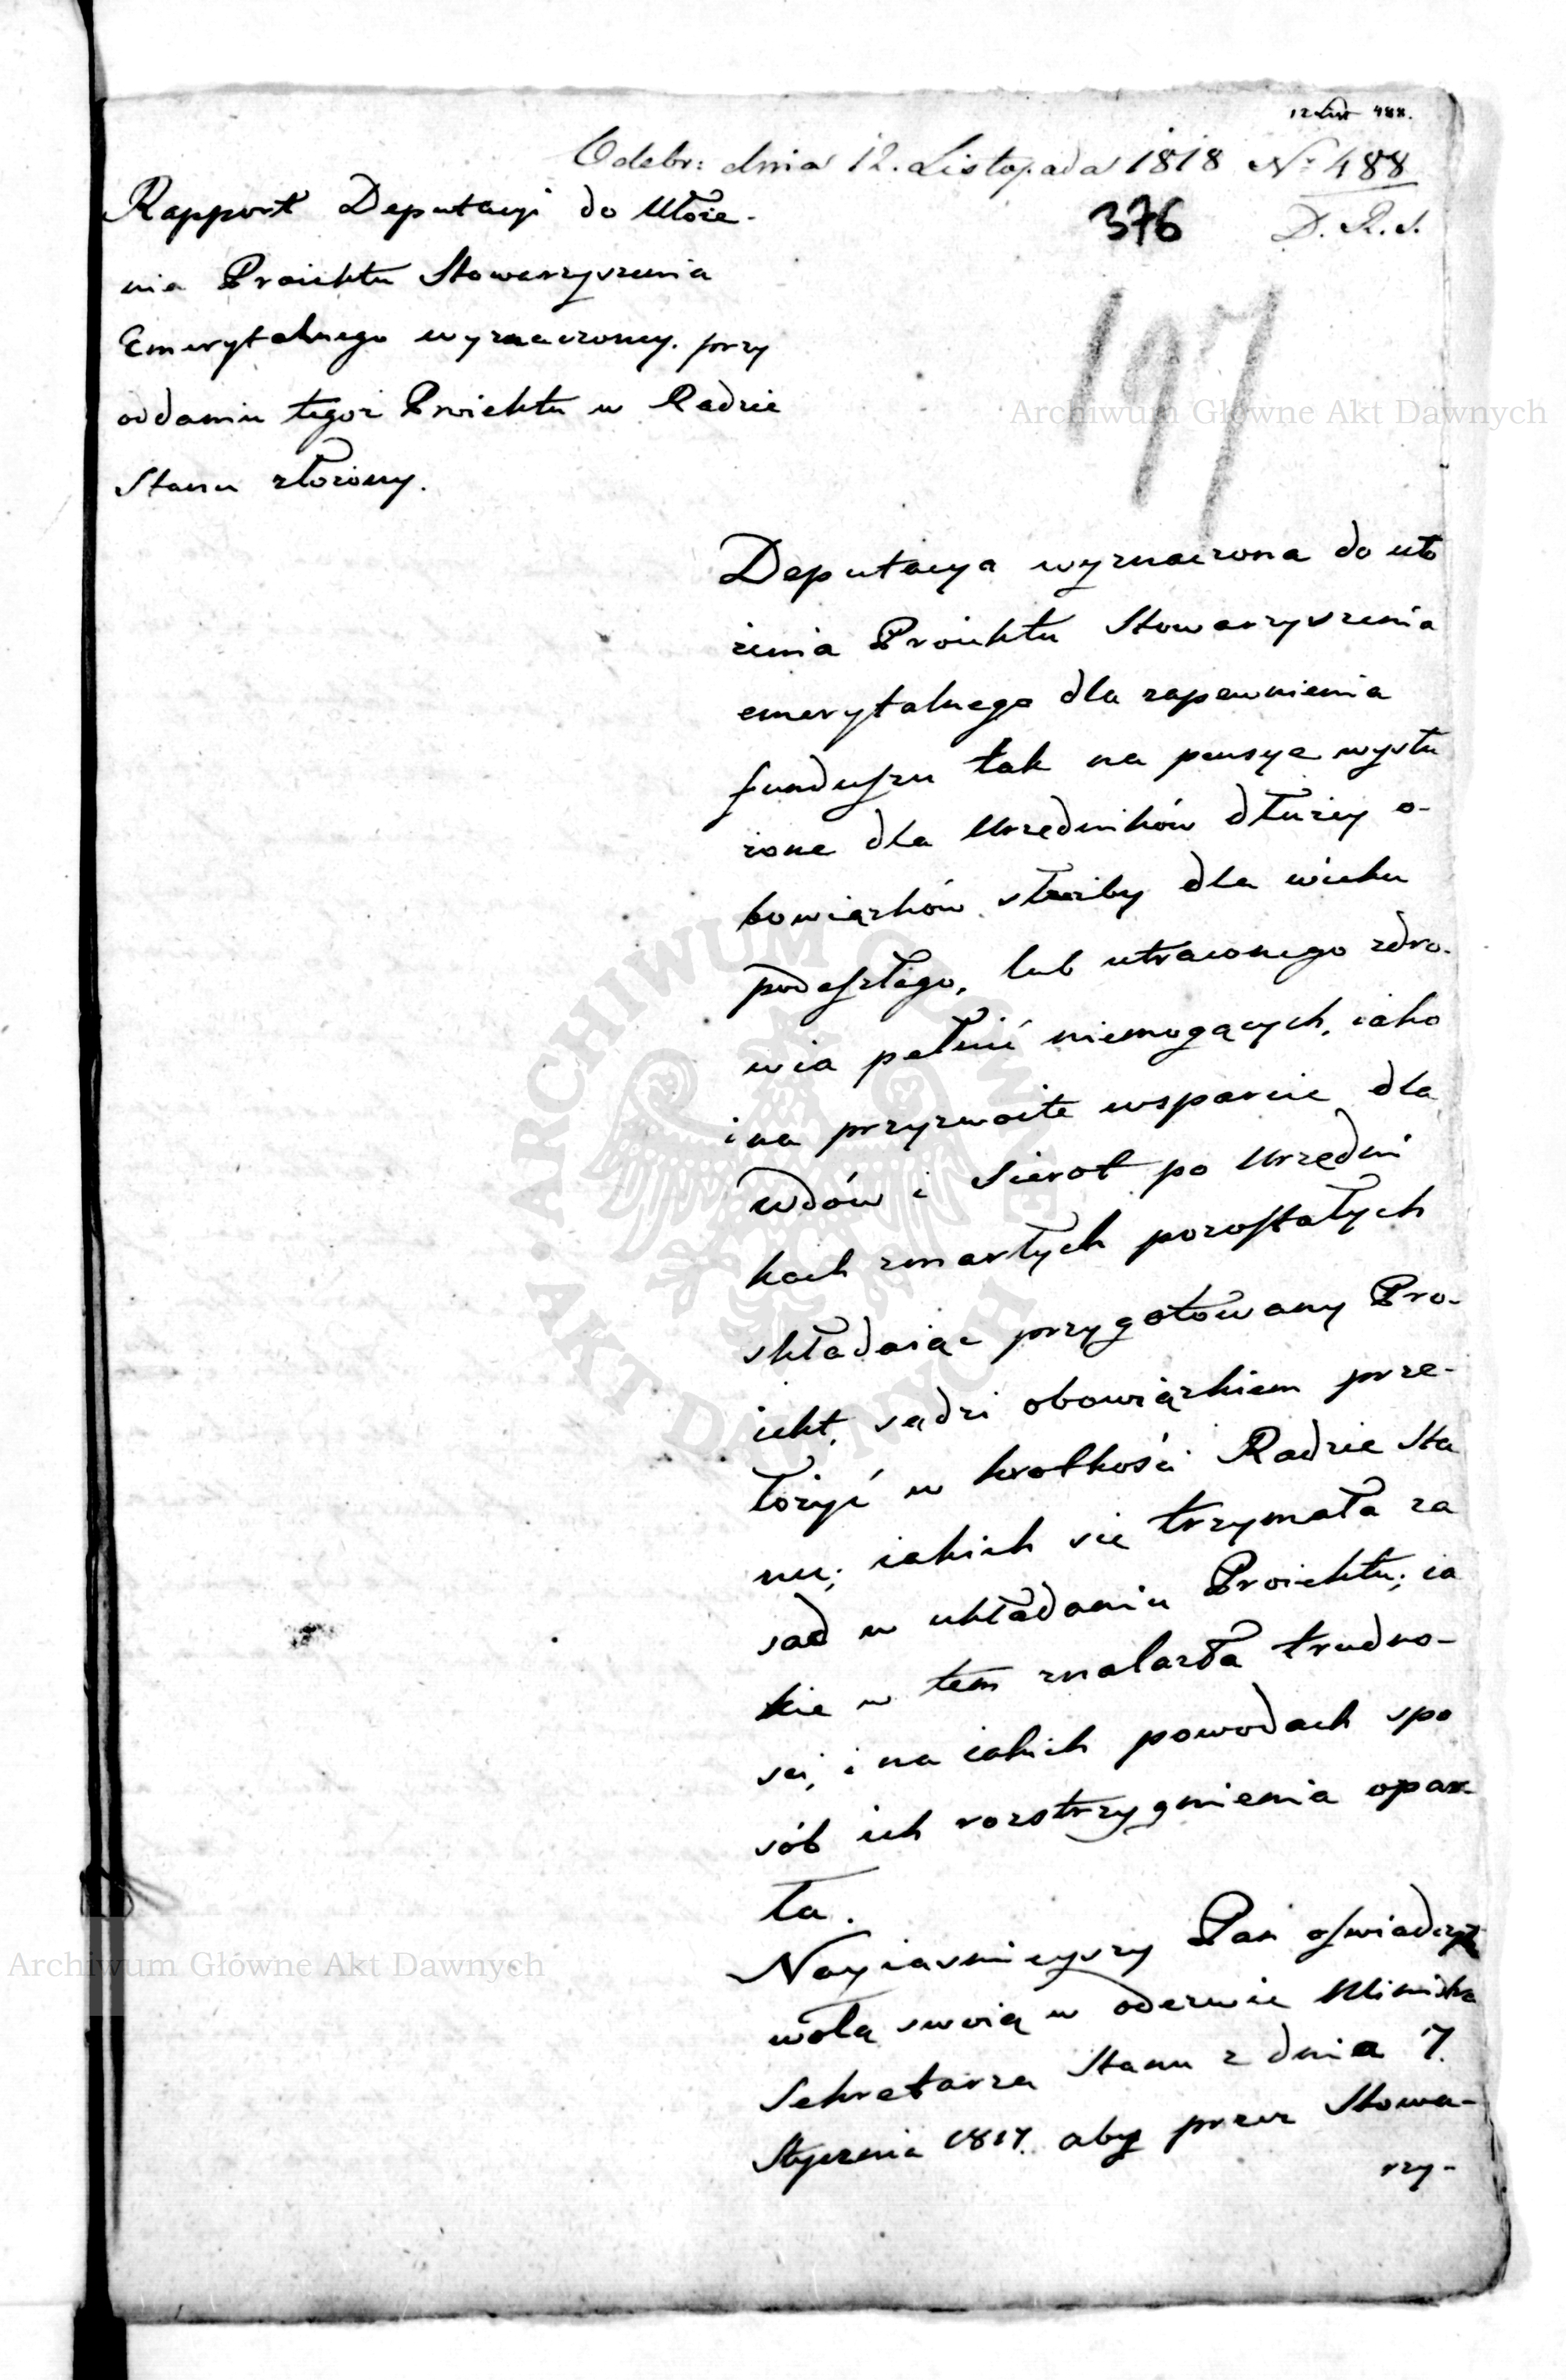 12 List 488.
Odebr: dnia 12. Listopada 1818 No 488
376 D. R. S.
197
Rapport Deputacyi do Ułoże-
nia Proiektu Stowarzyszenia
Emerytalnego wyznaczoney. przy
oddaniu tegoż Proiektu w Radzie
Stanu złożony.
Deputacya wyznaczona do uło
żenia Proiektu Stowarzyszenia
emerytalnego dla zapewnienia
funduszu tak na pensye wysłu
żone dla Urzędników dłużey o-
bowiązków służby dla wieku
podeszłego, lub utraconego zdro-
wia pełnić niemogących, iako
i na przyzwoite wsparcie dla
wdów i Sierot po Urzędni
kach zmarłych pozostałych
składaiąc przygotowany Pro-
iekt, sądzi obowiązkiem prze-
łożyć w krotkości Radzie Sta
nu; iakich się trzymała za
sad w układaniu Proiektu; ia
kie w tem znalazła trudno-
ści, i na iakich powodach spo
sób ich rozstrzygnienia opar-
ła.
Nayiaśnieyszy Pan oświadczył
wolą swoią w odezwie Ministra
Sekretarza Stanu z dnia 7.
Stycznia 1817. aby przez Stowa-
rzy-
Archiwum Główne Akt Dawnych
ARCHIWUM GŁÓWNE AKT DAWNYCH
Archiwum Główne Akt Dawnych